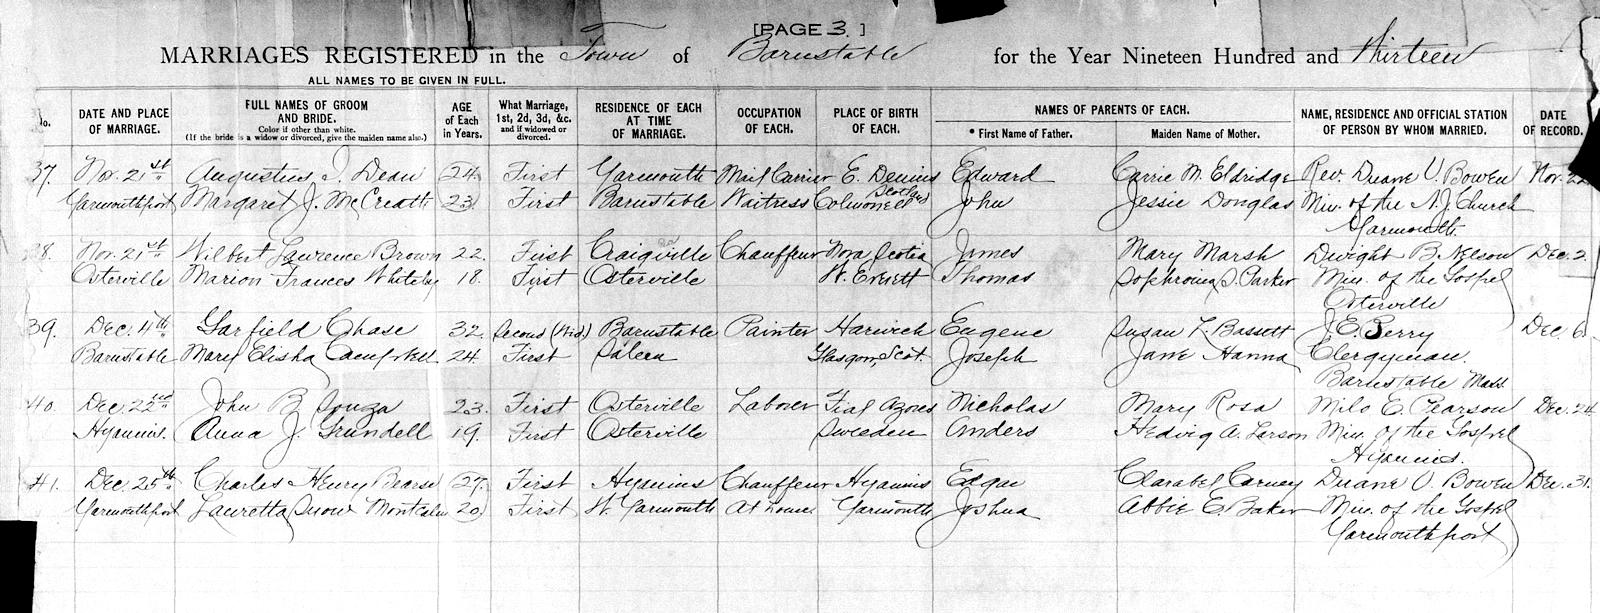 [PAGE 3.]
MARRIAGES REGISTERED in the Town of Barnstable for the Year Nineteen Hundred and Thirteen
ALL NAMES TO BE GIVEN IN FULL.
No. DATE AND PLACE OF MARRIAGE. FULL NAMES OF GROOM AND BRIDE. Color if other than white. (If the bride is a widow or divorced, give the maiden name also.) AGE of Each in Years. What Marriage, 1st, 2d, 3d, &c. and if widowed or divorced. RESIDENCE OF EACH AT TIME OF MARRIAGE. OCCUPATION OF EACH. PLACE OF BIRTH OF EACH. NAMES OF PARENTS OF EACH. * First Name of Father. Maiden Name of Mother. NAME, RESIDENCE AND OFFICIAL STATION OF PERSON BY WHOM MARRIED. DATE OF RECORD.
37. Nov. 21st Augustus I. Dean 24. First Yarmouth Mail Carrier E. Dennis Edward Carrie M. Eldridge Rev. Duane V. Bowen Nov. 22
Yarmouthport Margaret J. McCreath 23. First Barnstable Waitress Colmonell Scotland John Jessie Douglas Min. of the N.J. Church
Yarmouth
38. Nov. 21st Wilbert Laurence Brown 22. First Craigville Chauffeur Nova Scotia James Mary Marsh Dwight B. Nelson Dec. 2.
Osterville Marion Frances Whiteley 18. First Osterville W. Everett Thomas Sophronia S. Parker Min. of the Gospel
Osterville
39. Dec. 4th Garfield Chase 32. Second (Wid) Barnstable Painter Harwich Eugene Susan L. Bassett J. E. Perry Dec. 6.
Barnstable Mary Elisha Campbell 24. First Salem Glasgow, Scot. Joseph Jane Hanna Clergyman.
Barnstable Mass
40. Dec. 22nd John B. Souza 23. First Osterville Laborer Fial Azores Nicholas Mary Rosa Milo E. Pearson Dec. 24.
Hyannis. Anna J. Grundell 19. First Osterville Sweeden Anders Hedvig A. Larson Min. of the Gospel
Hyannis.
41. Dec. 25th Charles Henry Bearse 27. First Hyannis Chauffeur Hyannis Edgar Clarabel Carney Duane V. Bowen Dec. 31.
Yarmouthport Lauretta Snow Montcalm 20. First W. Yarmouth At home Yarmouth Joshua Abbie E. Baker Min. of the Gospel
Yarmouthport